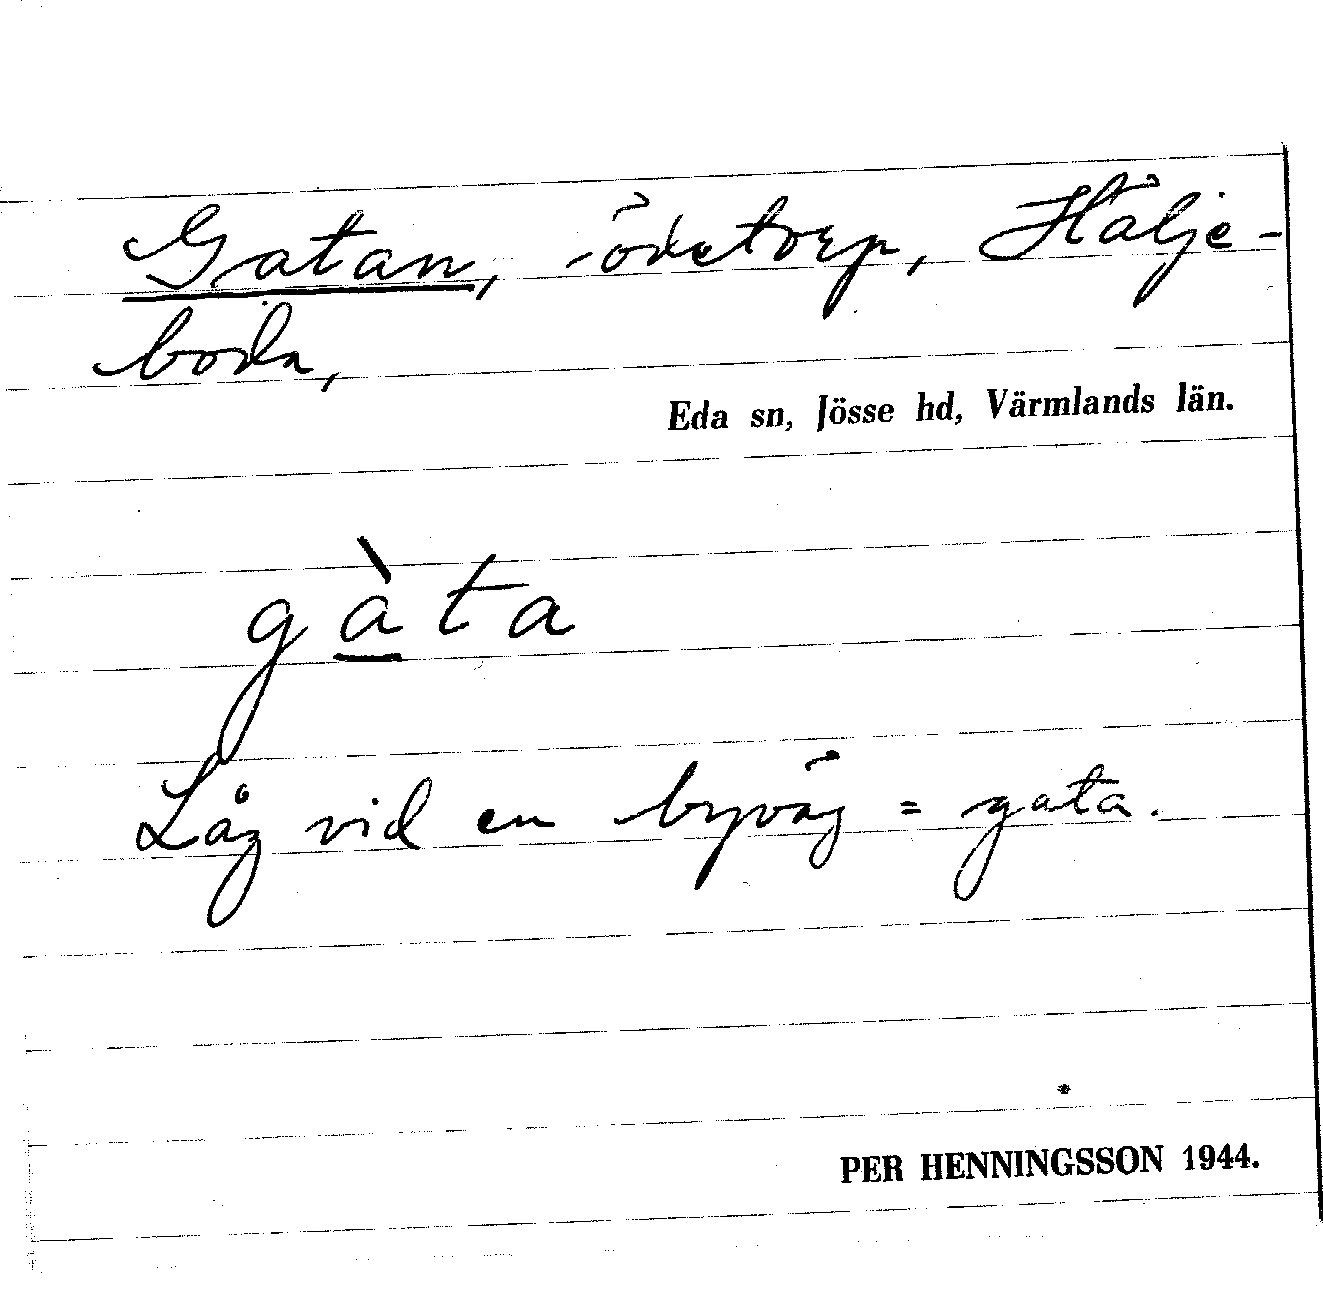 Gatan, ödetorp, Hälje-
boda,
Eda sn, Jösse hd, Värmlands län.
gàta
Låg vid en byväg = gata.
PER HENNINGSSON 1944.